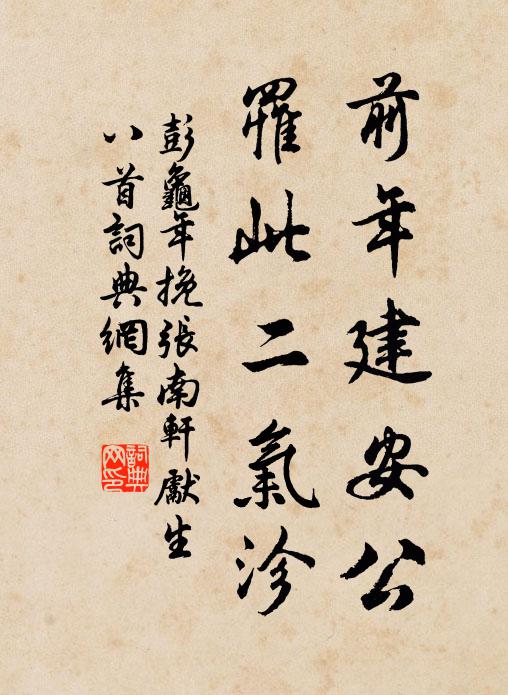 前年建安公
罹此二氣沴
彭龜年挽張南軒獻生
八首詞典網集
詞典网印